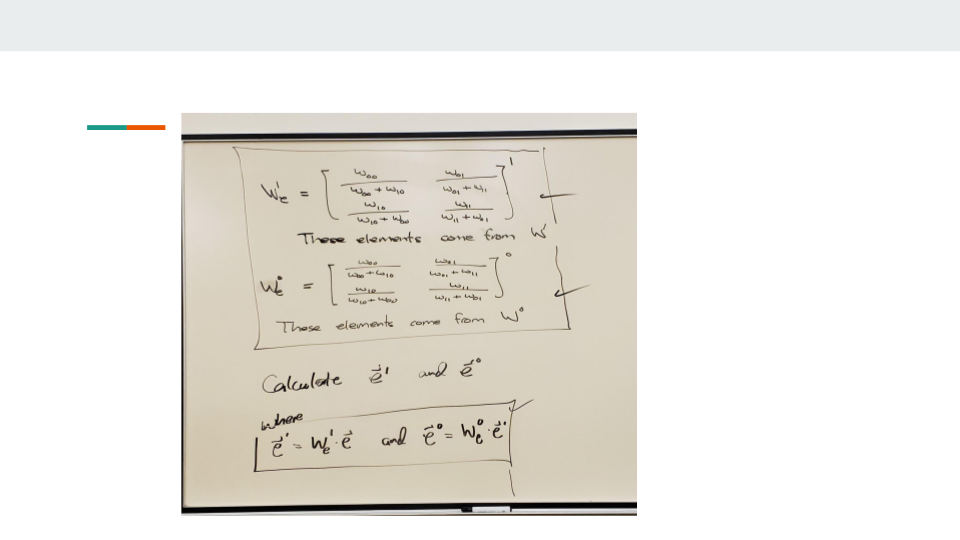 W_e^1 = [ w00/(w00 + w10) w01/(w01 + w11)
w10/(w10 + w00) w11/(w11 + w01) ]^1
These elements come from W^1
W_e^0 = [ w00/(w00 + w10) w01/(w01 + w11)
w10/(w10 + w00) w11/(w11 + w01) ]^0
These elements come from W^0
Calculate e⃗^1 and e⃗^0
where
e⃗^1 = W_e^1 · e⃗ and e⃗^0 = W_e^0 · e⃗^1